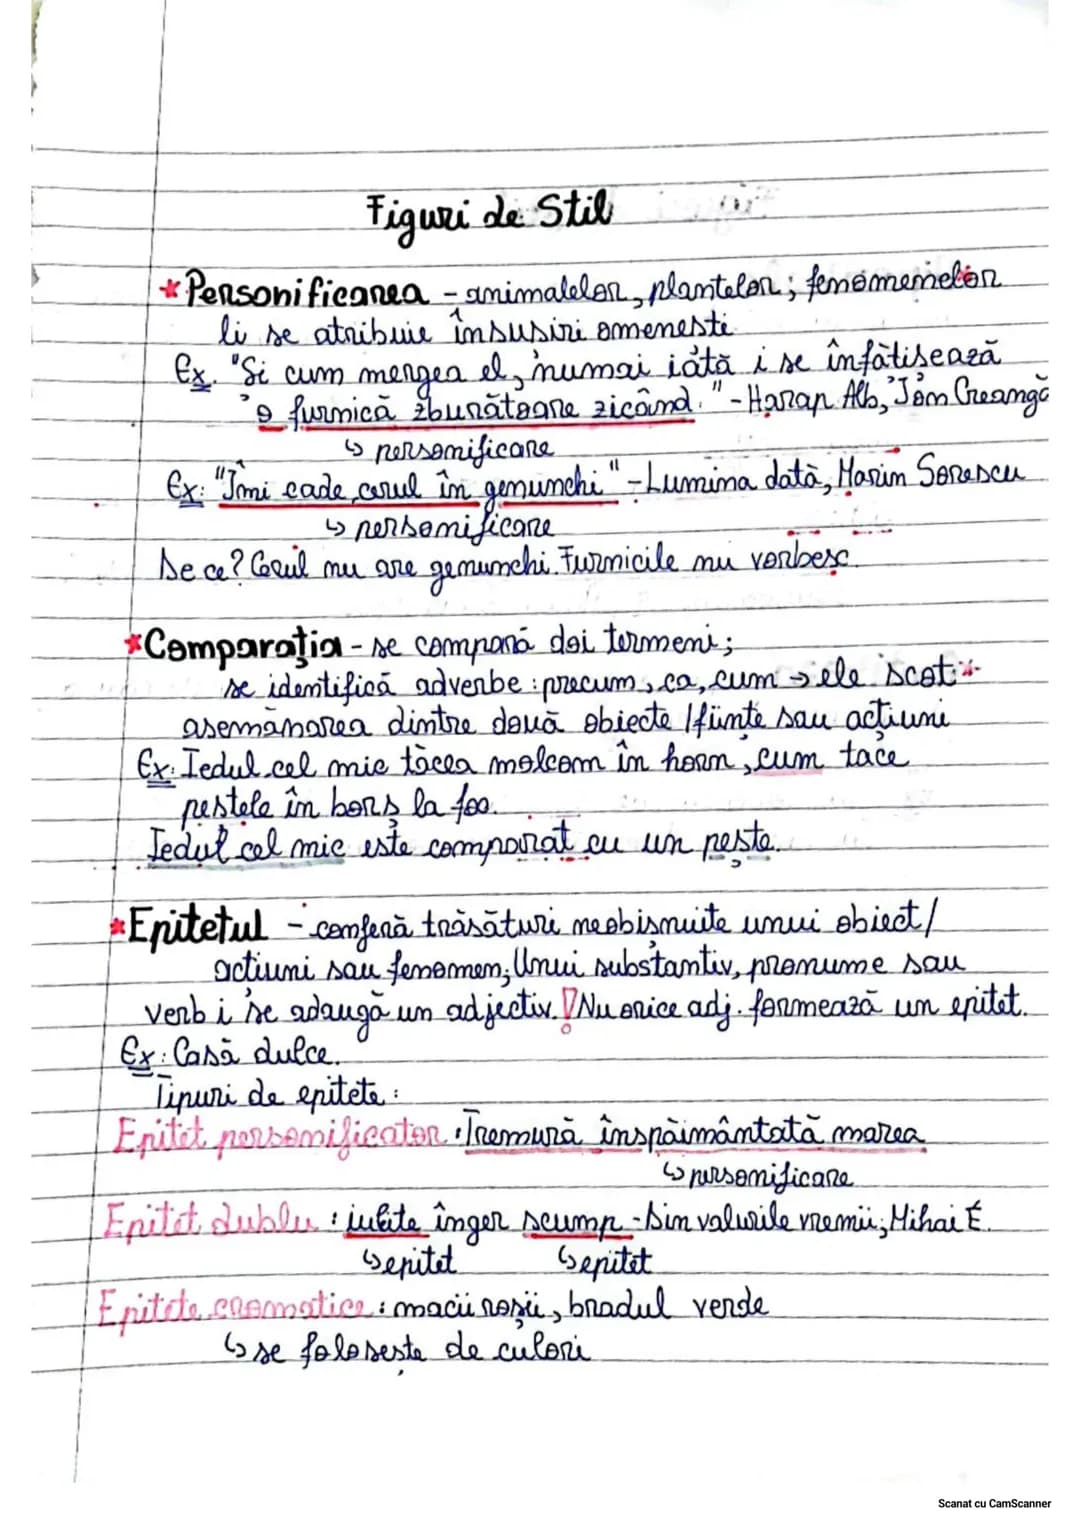 Figuri de Stil
*Personificarea - animalelor, plantelor; fenomenelor
li se atribuie însușiri omenești
Ex. "Și cum mergea el, numai iată i se înfățișează
o furnică zburătoare zicând." - Harap Alb, Ion Creangă
↳ personificare
Ex: "Îmi cade cerul în genunchi" - Lumina dată, Marin Sorescu
↳ personificare
De ce? Cerul nu are genunchi. Furnicile nu vorbesc.
*Comparația - se compară doi termeni;
se identifică adverbe: precum, ca, cum → ele scot
asemănarea dintre două obiecte / ființe sau acțiuni
Ex: Iedul cel mic tăcea molcom în horn, cum tace
peștele în borș la foc.
Iedul cel mic este comparat cu un pește.
*Epitetul - conferă trăsături neobișnuite unui obiect/
acțiuni sau fenomen; Unui substantiv, pronume sau
verb i se adaugă un adjectiv. ! Nu orice adj. formează un epitet.
Ex: Casă dulce.
Tipuri de epitete:
Epitet personificator: Tremură înspăimântată marea
↳ personificare
Epitet dublu: iubite înger scump - Din valurile vremii, Mihai E.
↳ epitet ↳ epitet
Epitete cromatice: macii roșii, bradul verde
↳ se folosește de culori
Scanat cu CamScanner